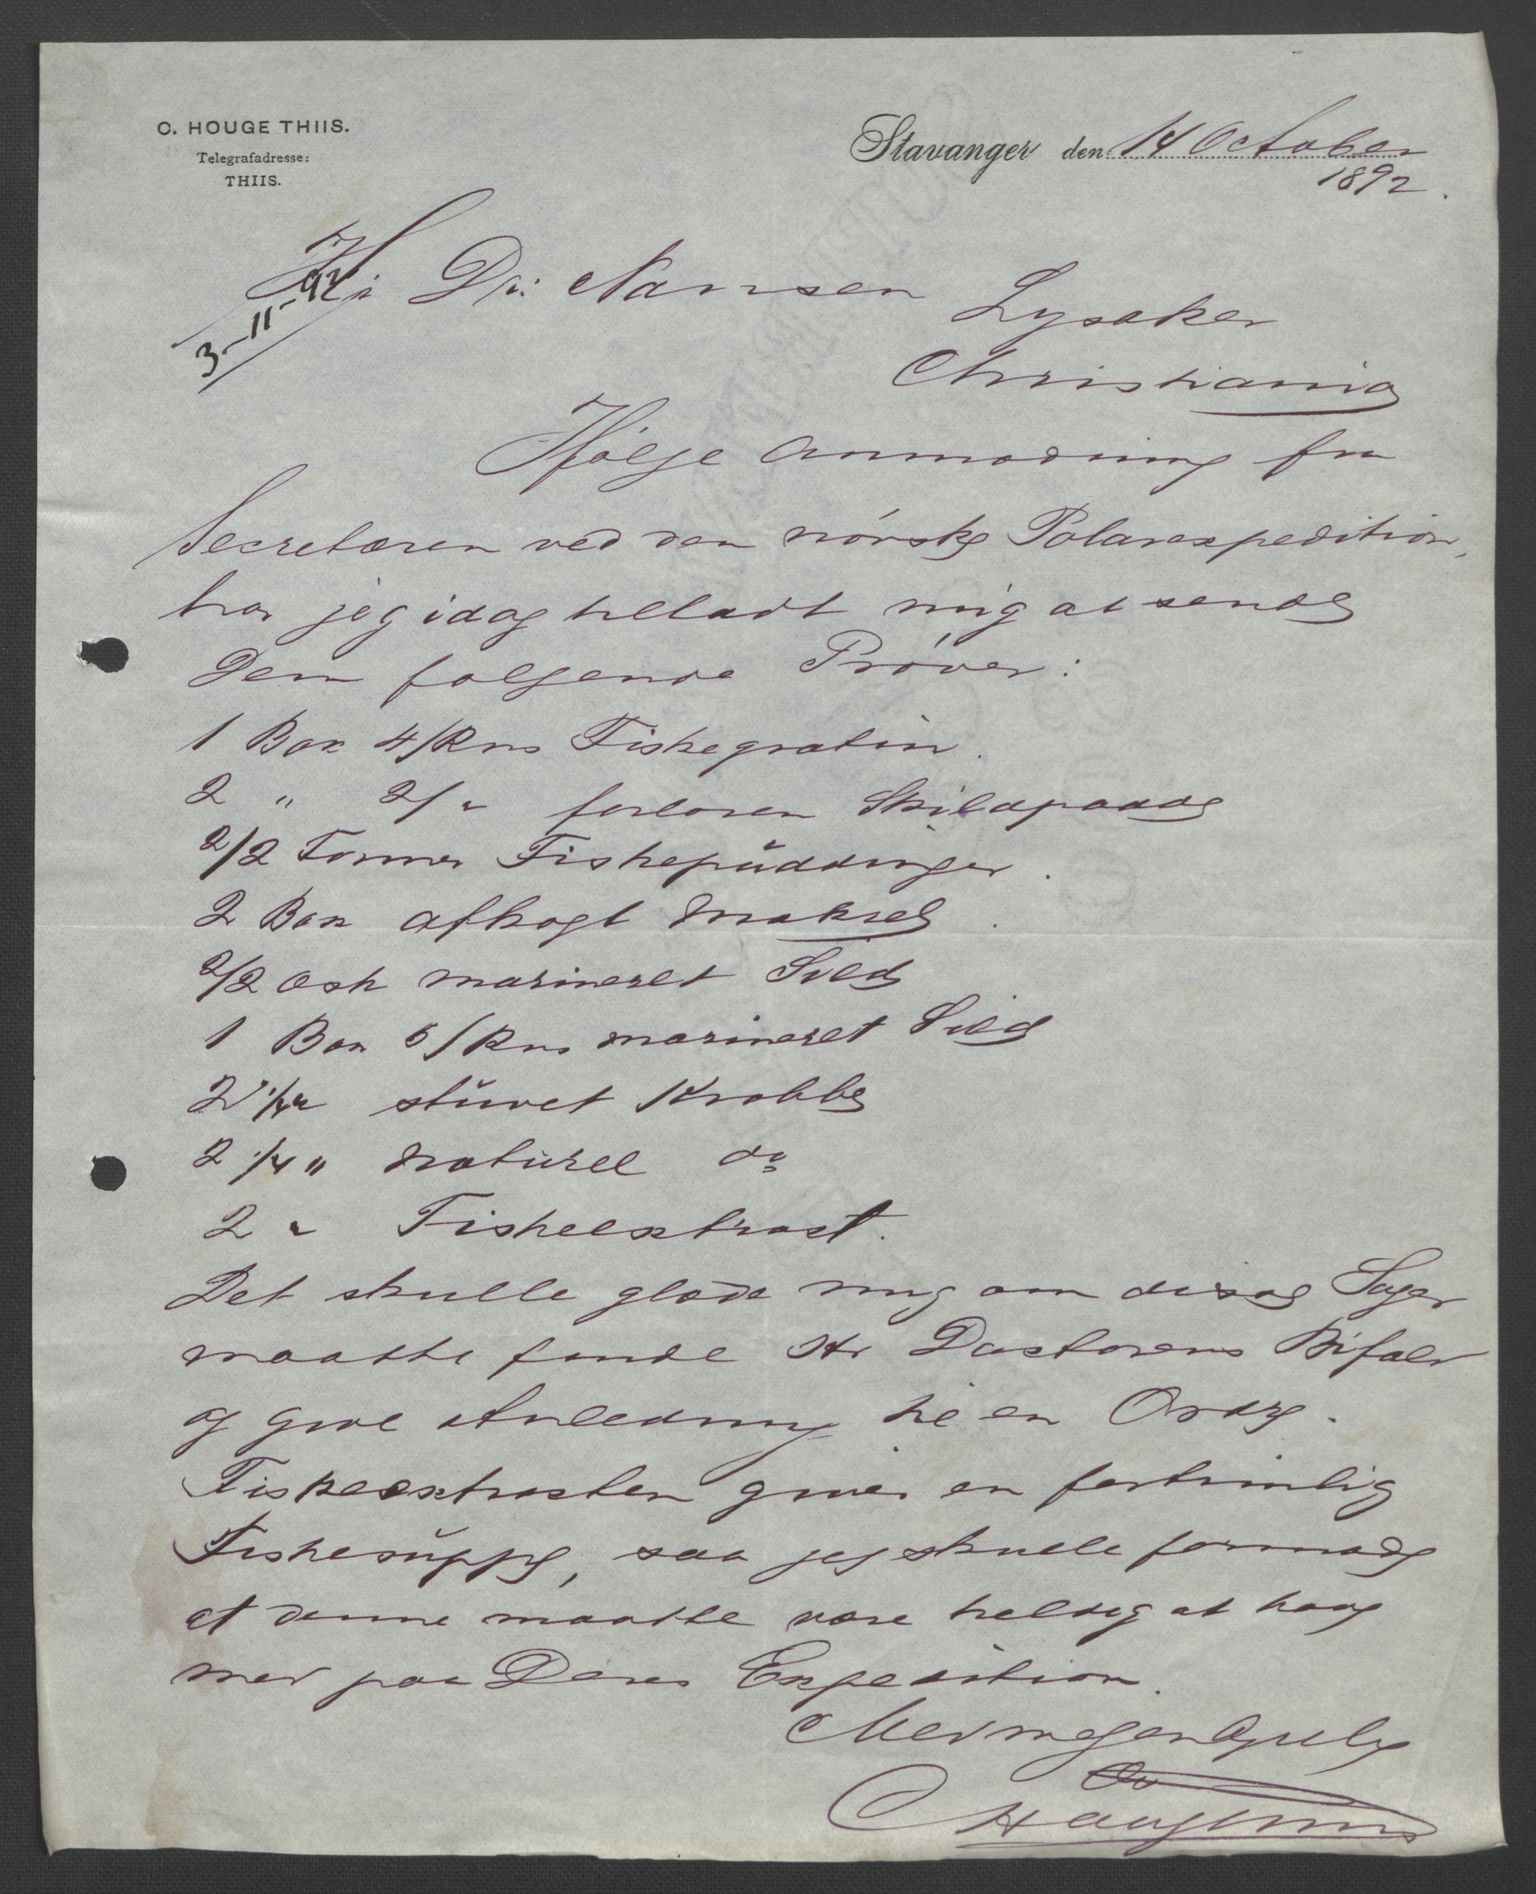 C. HOUGE THIIS.
Telegrafadresse:
THIIS.
Stavanger den 14 October
1892.
Hr Dr: Nansen
3-11-92
Lysaker
Christiania
Ifølge Anmodning fra
Secretæren ved den norske Polarexpedition,
har jeg idag tilladt mig at sende
Dem følgende Prøver:
1 Box 4/Rns Fiskegratin.
2 " 2/" forloren Skildpadde
2/2 Former Fiskepuddinger.
2 Box afkogt Makrel.
2/2 Æsk marineret Sild
1 Box 6/Rns marineret Sild
2 1/4 " stuvet Krabbe
2 1/4 " naturel do
2 " Fiskeextract.
Det skulle glæde mig om disse Sager
maatte finde Hr Doctorens Bifald
og give Anledning til en Ordre.
Fiskeextracten giver en fortrinlig
Fiskesuppe, saa jeg skulle formode
at denne maatte være heldig at have
med paa Deres Expedition.
Med megen Agtelse
C Houge Thiis